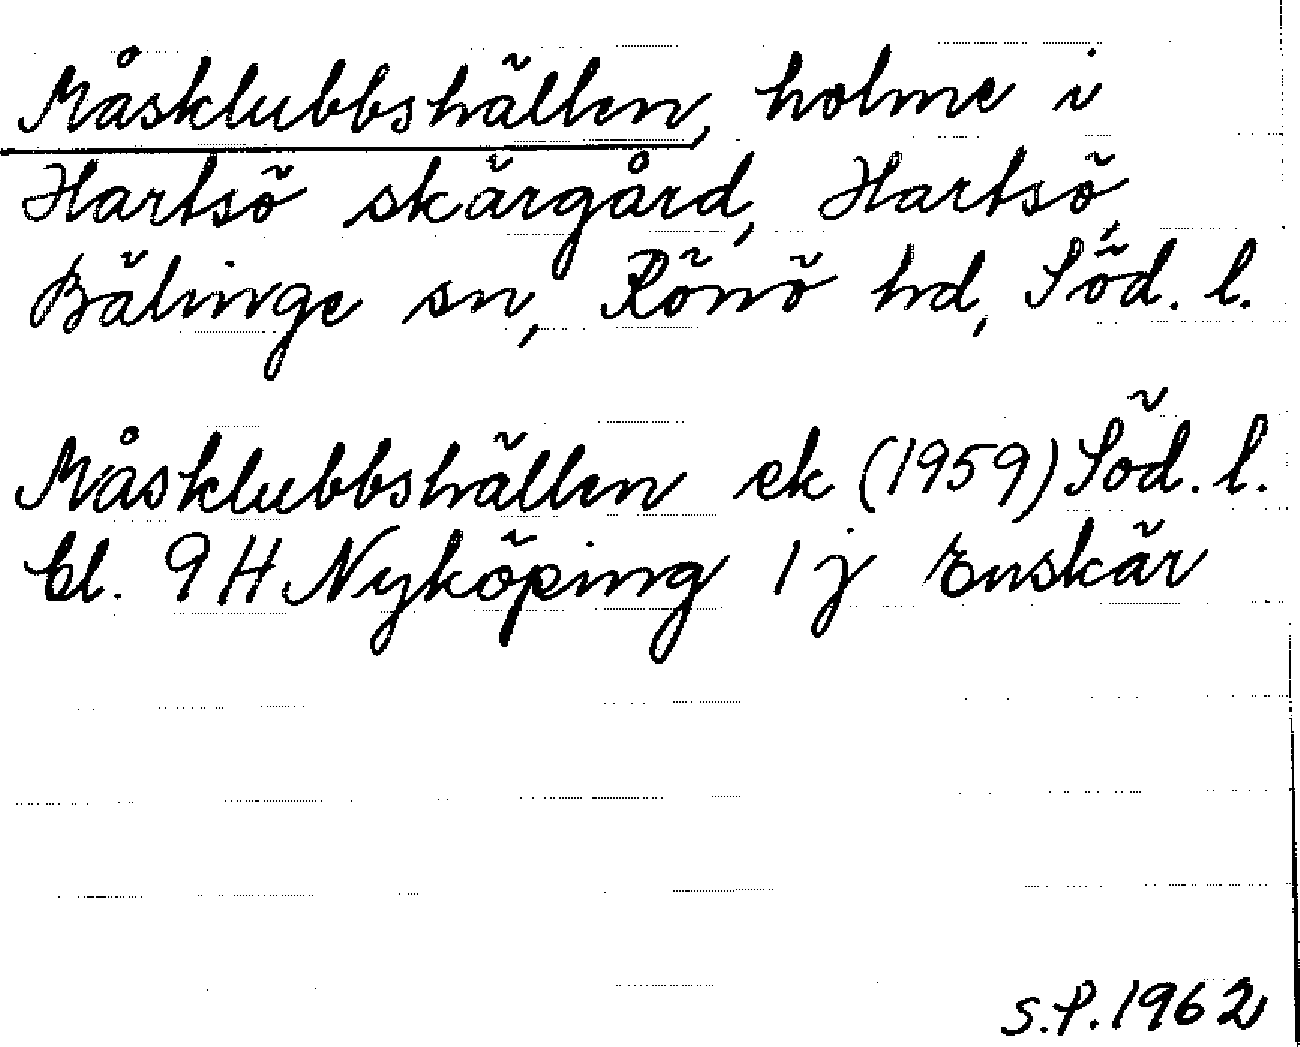 Måsklubbshällen, holme i
Hartsö skärgård, Hartsö,
Bälinge sn, Rönö hd, Söd. l.
Måsklubbshällen ek (1959) Söd. l.
bl. 9H Nyköping 1 j Enskär
S.P. 1962